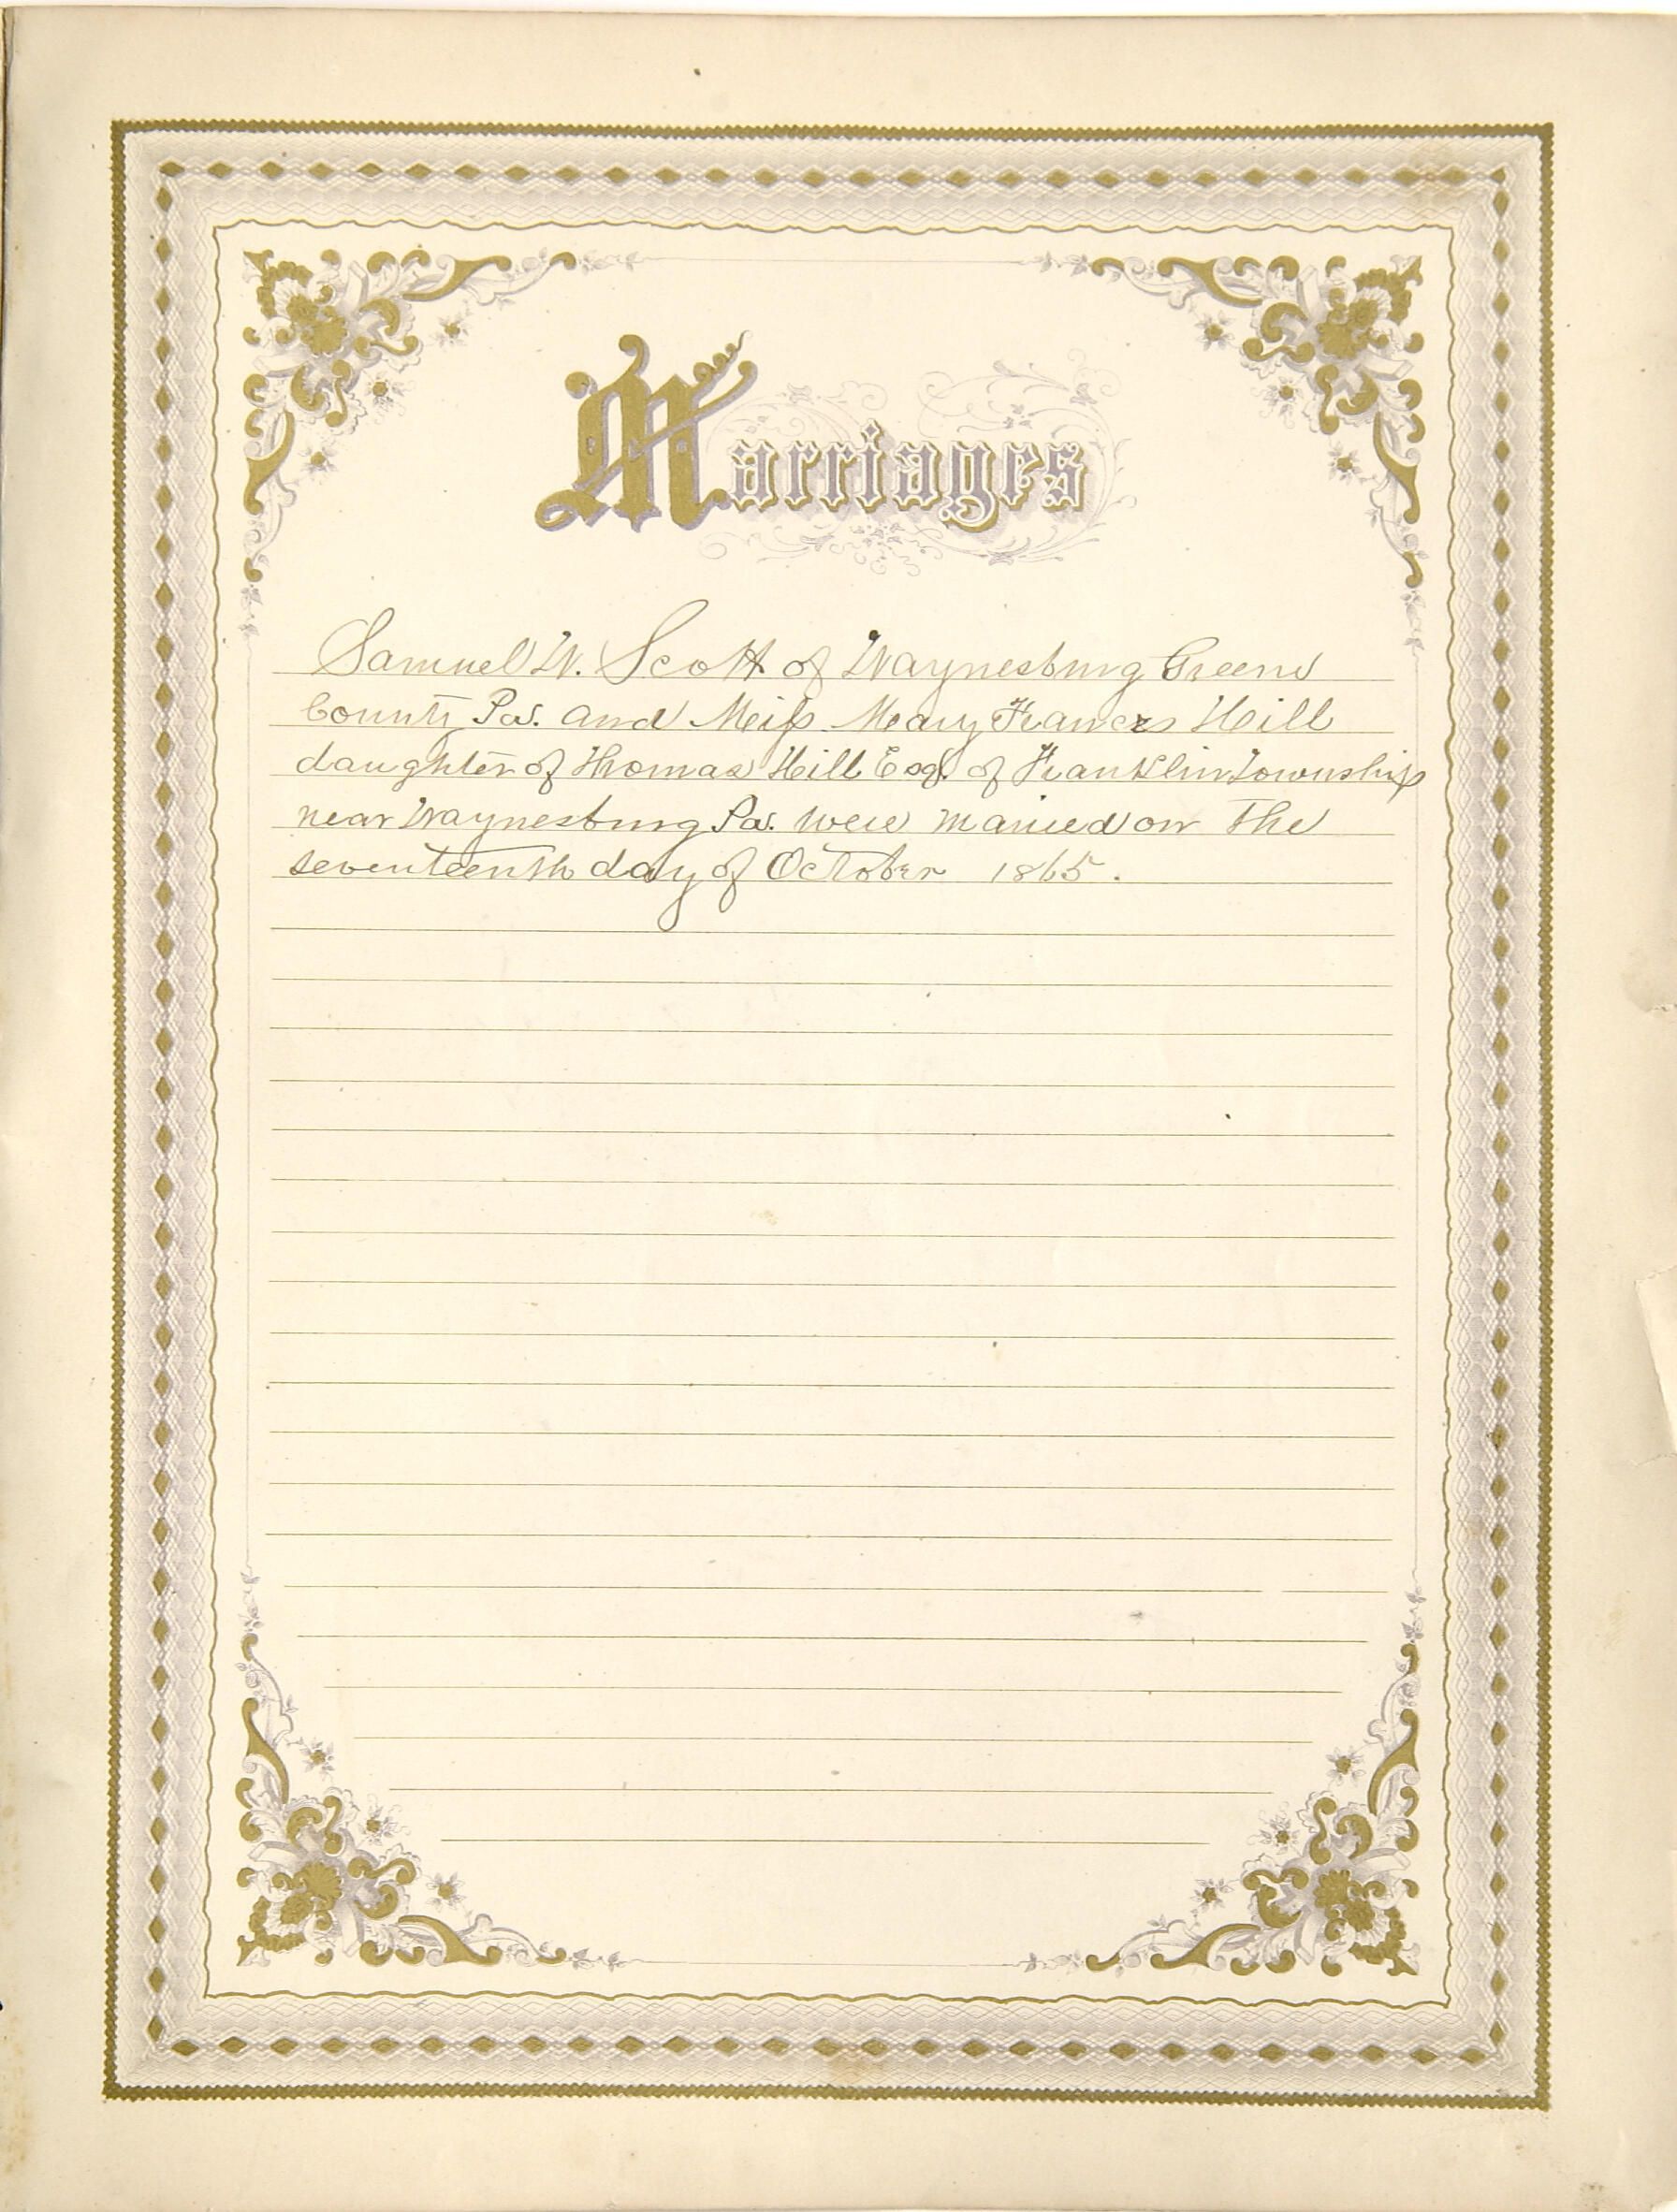 Marriages
Samuel W. Scott of Waynesburg Greene
County Pa. and Miss Mary Frances Hill
daughter of Thomas Hill Esq. of Franklin Township
near Waynesburg Pa. were married on the
seventeenth day of October 1865.